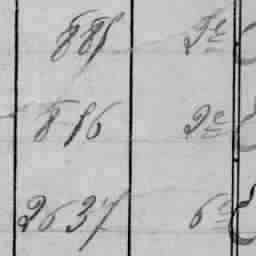 881 3e
816 2e
2637 6e